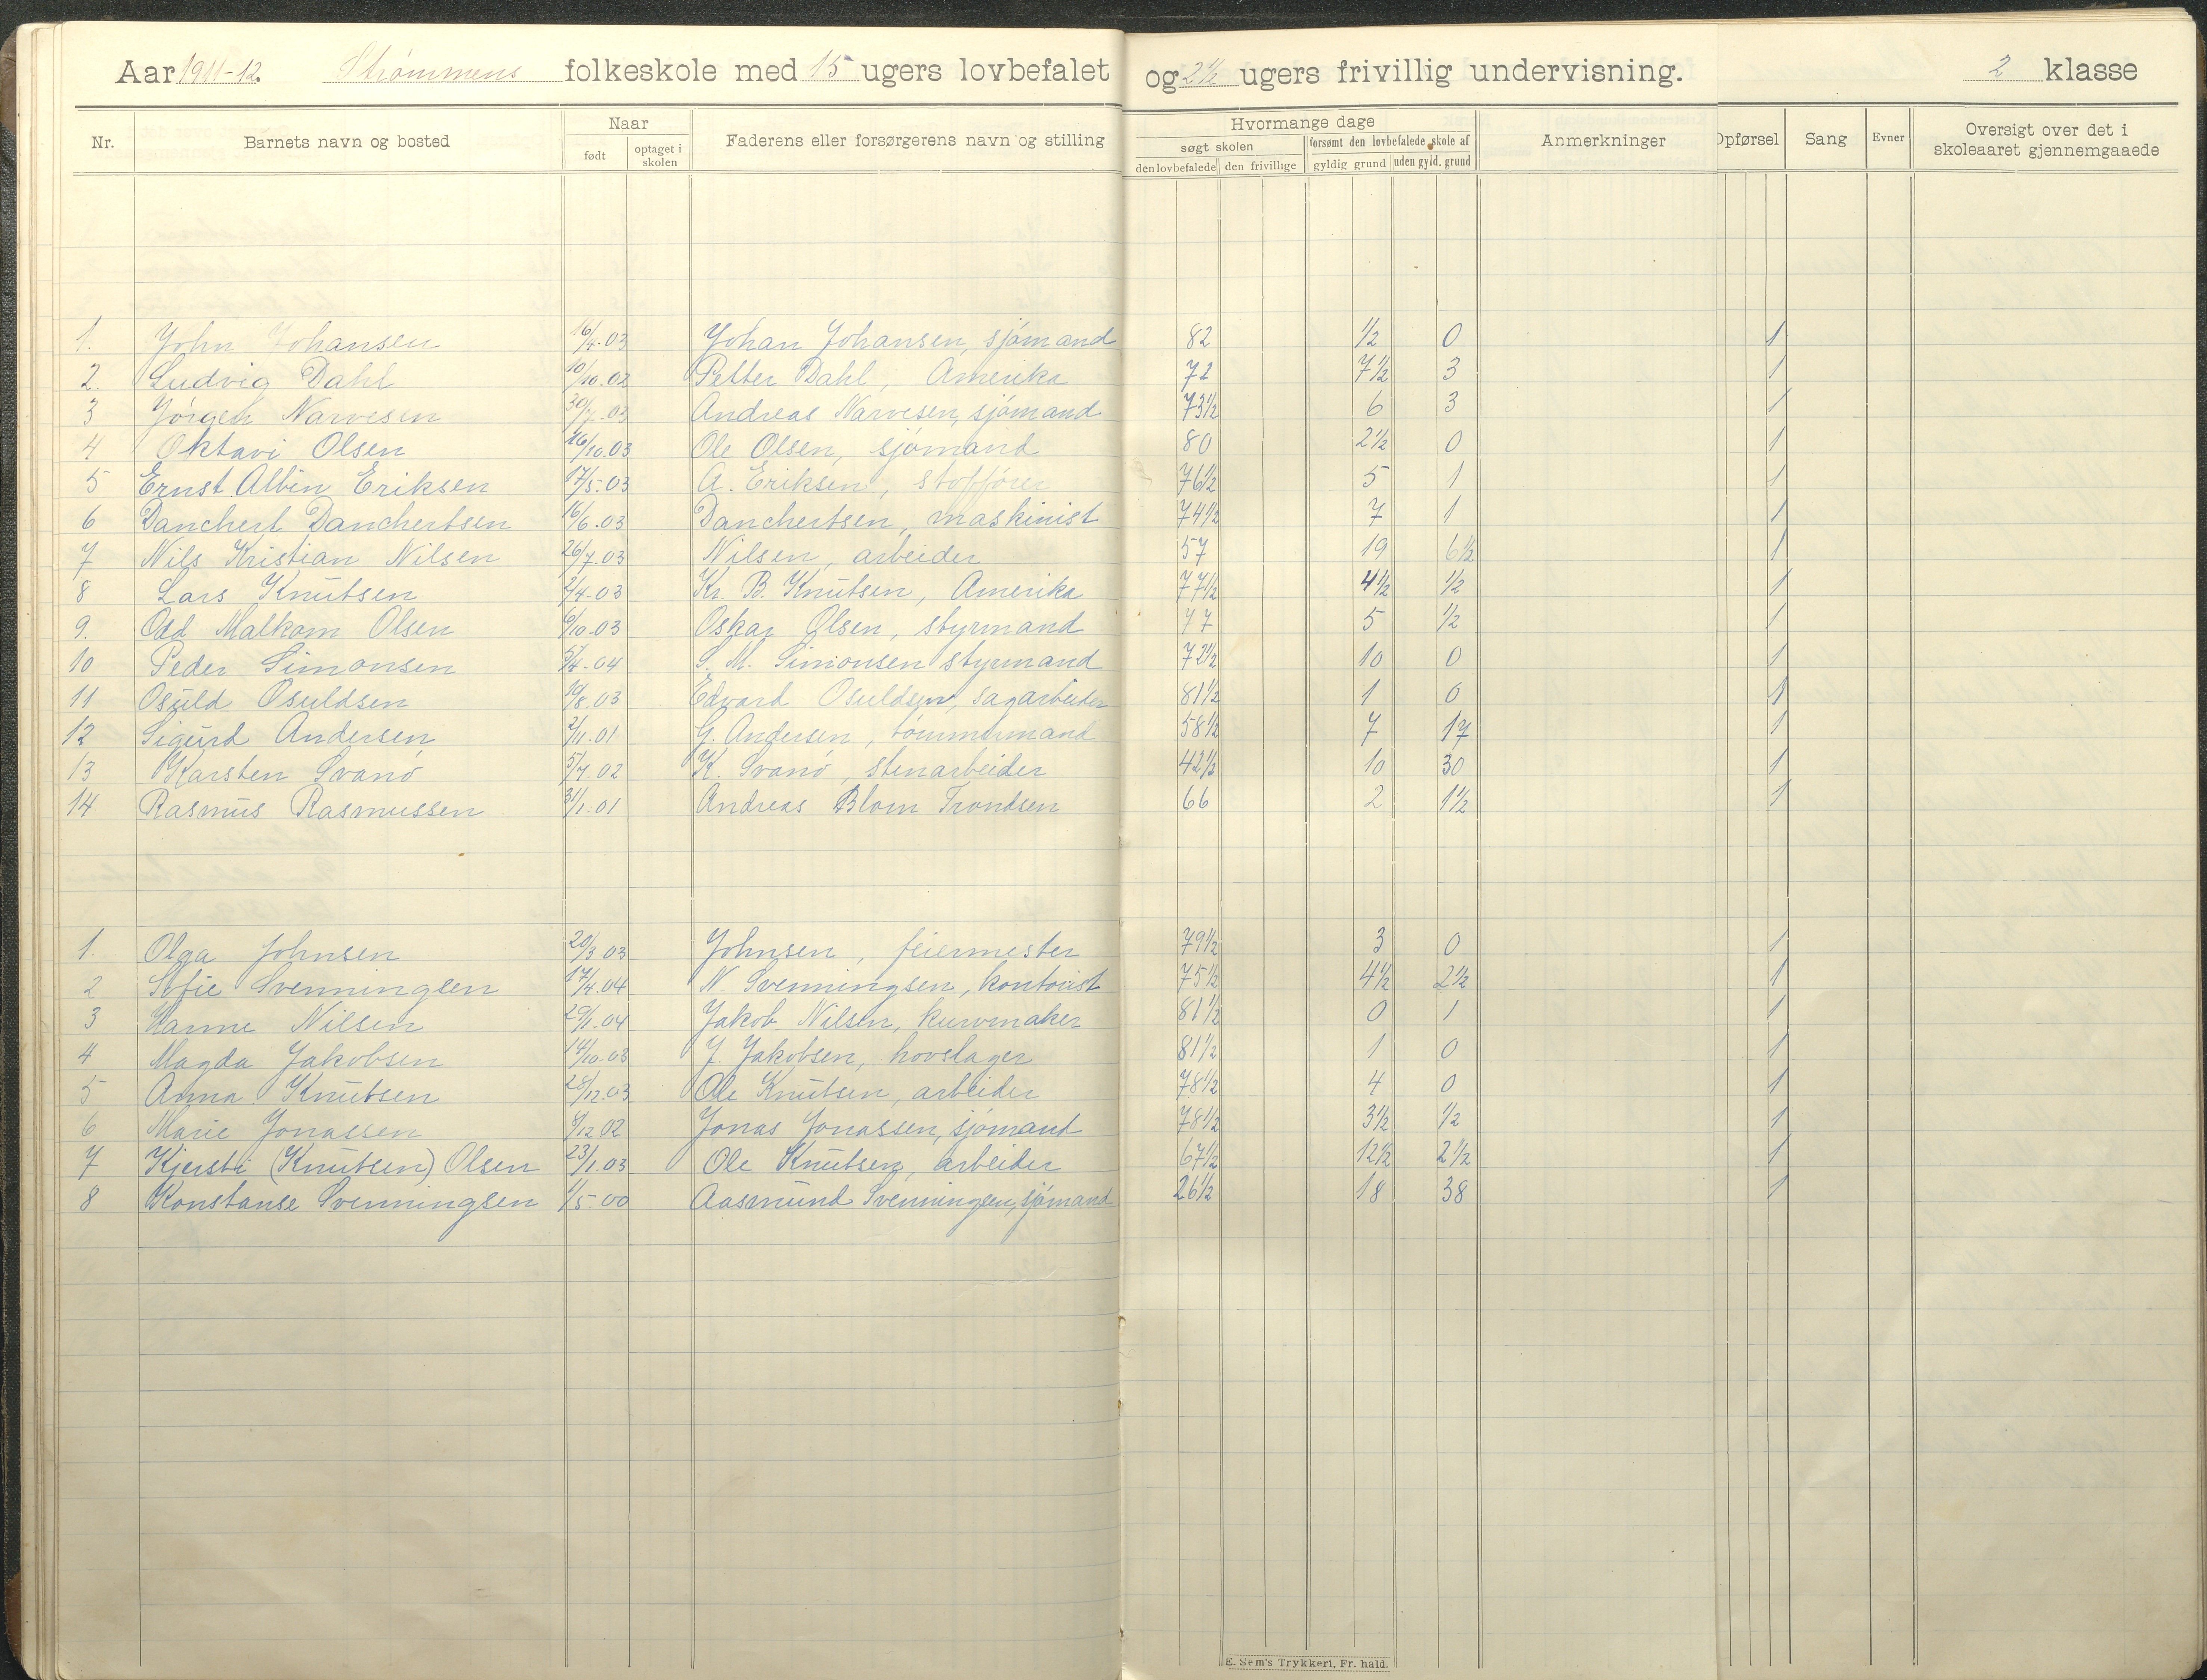 Aar 1911-12. Strømmens folkeskole med 15 ugers lovbefalet og 2½ ugers frivillig undervisning. 2 klasse
Nr. Barnets navn og bosted Naar født optaget i skolen Faderens eller forsørgerens navn og stilling Hvormange dage søgt skolen den lovbefalede den frivillige forsømt den lovbefalede skole af gyldig grund uden gyld. grund Anmerkninger Opførsel Sang Evner Oversigt over det i skoleaaret gjennemgaaede
1. John Johansen 16/4.03 Johan Johansen, sjømand 82 ½ 0 1
2. Ludvig Dahl 10/10.02 Petter Dahl, Amerika 72 7½ 3 1
3 Jørgen Narvesen 30/7.03 Andreas Narvesen, sjømand 73½ 6 3 1
4 Oktavi Olsen 16/10.03 Ole Olsen, sjømand 80 2½ 0 1
5 Ernst Albin Eriksen 17/5.03 A. Eriksen, 76½ 5 1 1
6 Danchert Danchertsen 16/6.03 Danchertsen, maskinist 74½ 7 1 1
7 Nils Kristian Nilsen 26/7.03 Nilsen, arbeider 57 19 6½ 1
8 Lars Knutsen 2/4.03 Kr. B. Knutsen, Amerika 77½ 4½ ½ 1
9. Odd Malkom Olsen 6/10.03 Oskar Olsen, styrmand 77 5 ½ 1
10 Peder Simonsen 5/4.04 S. M. Simonsen styrmand 72½ 10 0 1
11 Osuld Osuldsen 19/8.03 Edvard Osuldsen, sagarbeider 81½ 1 0 1
12 Sigurd Andersen 2/11.01 G. Andersen, tømmermand 58½ 7 17 1
13 Karsten Svanø 5/7.02 K. Svanø, stenarbeider 42½ 10 30 1
14 Rasmus Rasmussen 31/1.01 Andreas Blom Trondsen 66 2 1½ 1
1. Olga Johnsen 20/3 03 Johnsen, feiermester 79½ 3 0 1
2 Sofie Svenningsen 17/4.04 N. Svenningsen, kontorist 75½ 4½ 2½ 1
3 Hanne Nilsen 29/1.04 Jakob Nilsen, kurvmaker 81½ 0 1 1
4 Magda Jakobsen 14/10.03 J. Jakobsen, hovslager 81½ 1 0 1
5 Anna Knutsen 28/12.03 Ole Knutsen, arbeider 78½ 4 0 1
6 Marie Jonassen 8/12 02 Jonas Jonassen, sjømand 78½ 3½ ½ 1
7 Kjersti (Knutsen) Olsen 23/1.03 Ole Knutsen, arbeider 67½ 12½ 2½ 1
8 Konstanse Svenningsen 1/5.00 Aasmund Svenningsen, sjømand 26½ 18 38 1
E. Sem's Trykkeri, Fr. hald.